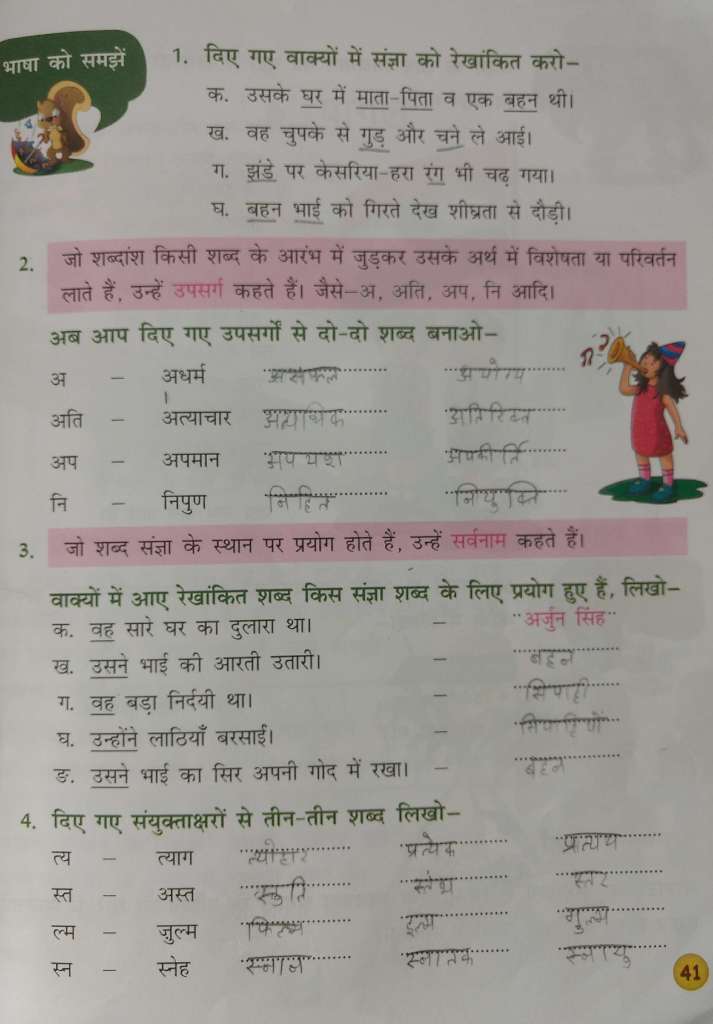 भाषा को समझें
1. दिए गए वाक्यों में संज्ञा को रेखांकित करो–
क. उसके घर में माता-पिता व एक बहन थी।
ख. वह चुपके से गुड़ और चने ले आई।
ग. झंडे पर केसरिया-हरा रंग भी चढ़ गया।
घ. बहन भाई को गिरते देख शीघ्रता से दौड़ी।
2. जो शब्दांश किसी शब्द के आरंभ में जुड़कर उसके अर्थ में विशेषता या परिवर्तन
लाते हैं, उन्हें उपसर्ग कहते हैं। जैसे–अ, अति, अप, नि आदि।
अब आप दिए गए उपसर्गों से दो-दो शब्द बनाओ–
अ – अधर्म असफल अयोग्य
अति – अत्याचार अत्याधिक अतिरिक्त
अप – अपमान अपयश अपकीर्ति
नि – निपुण निहित नियुक्ति
3. जो शब्द संज्ञा के स्थान पर प्रयोग होते हैं, उन्हें सर्वनाम कहते हैं।
वाक्यों में आए रेखांकित शब्द किस संज्ञा शब्द के लिए प्रयोग हुए हैं, लिखो–
क. वह सारे घर का दुलारा था। – अर्जुन सिंह
ख. उसने भाई की आरती उतारी। – बहन
ग. वह बड़ा निर्दयी था। – सिपाही
घ. उन्होंने लाठियाँ बरसाईं। – सिपाहियों
ङ. उसने भाई का सिर अपनी गोद में रखा। – बहन
4. दिए गए संयुक्ताक्षरों से तीन-तीन शब्द लिखो–
त्य – त्याग त्योहार प्रत्येक प्रत्यय
स्त – अस्त स्तुति स्तंभ स्तर
ल्म – जुल्म फिल्म इल्म गुल्म
स्न – स्नेह स्नान स्नातक स्नायु
41